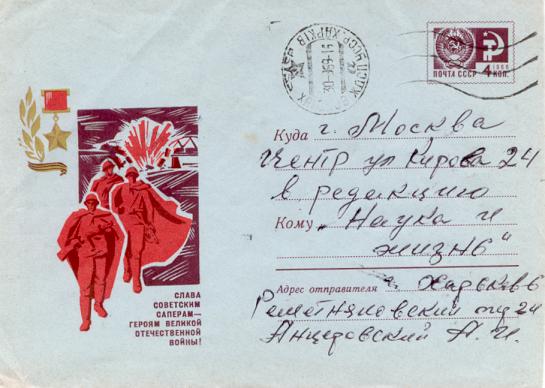 ПОЧТА СССР 4 КОП.
1966
Куда г. Москва
Центр ул Кирова 24
в редакцию
Кому „Наука и
жизнь"
Адрес отправителя г. Харьков 6
СЛАВА
СОВЕТСКИМ
САПЕРАМ—
ГЕРОЯМ ВЕЛИКОЙ
ОТЕЧЕСТВЕННОЙ
ВОЙНЫ!